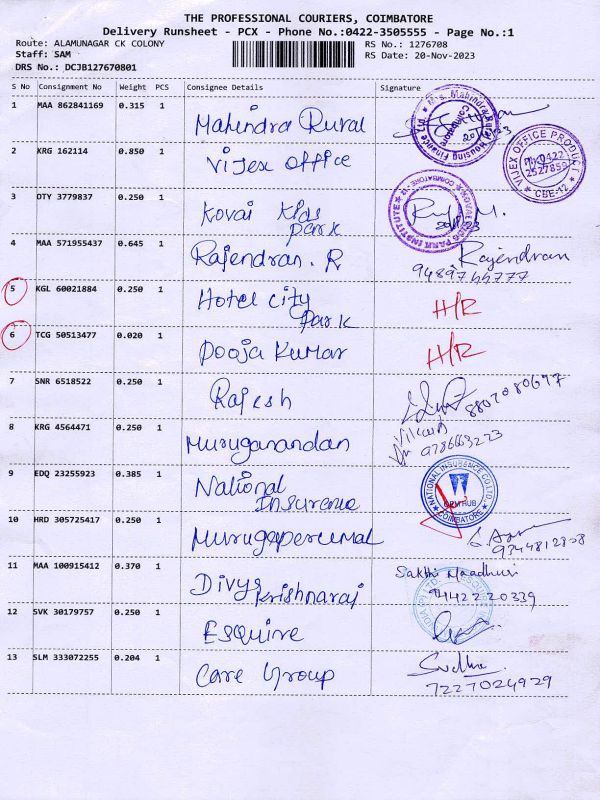 THE PROFESSIONAL COURIERS, COIMBATORE
Delivery Runsheet - PCX - Phone No.:0422-3505555 - Page No.:1
Route: ALAMUNAGAR CK COLONY RS No.: 1276708
Staff: SAM RS Date: 20-Nov-2023
DRS No.: DCJB127670801
S No Consignment No Weight PCS Consignee Details Signature
1 MAA 862841169 0.315 1 Mahindra Rural
2 KRG 162114 0.850 1 Vijex Office
VIJEX OFFICE PRODUCT
PH:0422
2527859
CBE-12
3 DTY 3779837 0.250 1 Kovai Kids
Park
4 MAA 571955437 0.645 1 Rajendran. R Rajendran
9489755777
5 KGL 60021884 0.250 1 Hotel City
Park H/R
6 TCG 50513477 0.020 1 Pooja Kumar H/R
7 SNR 6518522 0.250 1 Rajesh 8807080697
8 KRG 4564471 0.250 1 Muruganandan 9786663223
9 EDQ 23255923 0.385 1 National
Insurance
NATIONAL INSURANCE CO LTD
COIMBATORE
10 HRD 305725417 0.250 1 Murugaperumal
9344812808
11 MAA 100915412 0.370 1 Divya
Krishnaraj Sakthi Maadhuri
9442220339
12 SVK 30179757 0.250 1 Esquire
13 SLM 333072255 0.204 1 Care Group Sudha
7227024929